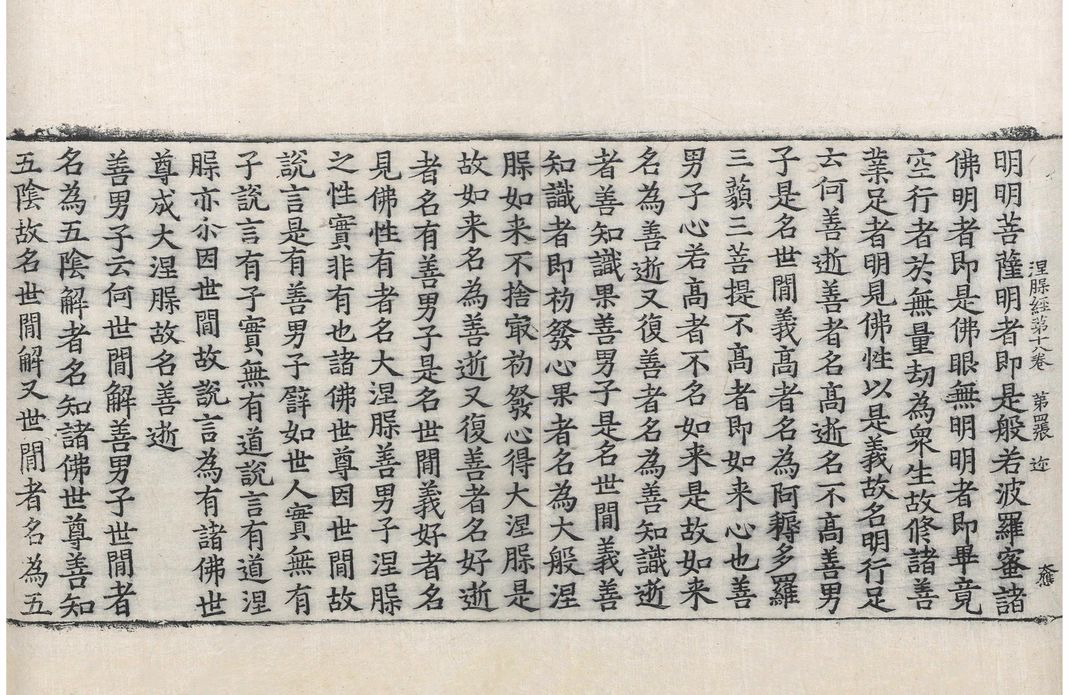 涅槃經第十八卷 第四張 迩
明明菩薩明者即是般若波羅蜜諸
佛明者即是佛眼無明明者即畢竟
空行者於無量劫為衆生故修諸善
業足者明見佛性以是義故名明行足
云何善逝善者名髙逝名不髙善男
子是名世閒義髙者名為阿耨多羅
三藐三菩提不髙者即如来心也善
男子心若髙者不名如来是故如来
名為善逝又復善者名為善知識逝
者善知識果善男子是名世閒義善
知識者即初發心果者名為大般涅
槃如来不捨冣初發心得大涅槃是
故如来名為善逝又復善者名好逝
者名有善男子是名世閒義好者名
見佛性有者名大涅槃善男子涅槃
之性實非有也諸佛世尊因世閒故
說言是有善男子譬如世人實無有
子說言有子實無有道說言有道涅
槃亦尒因世閒故說言為有諸佛世
尊成大涅槃故名善逝
善男子云何世閒解善男子世閒者
名為五陰解者名知諸佛世尊善知
五陰故名世閒解又世閒者名為五